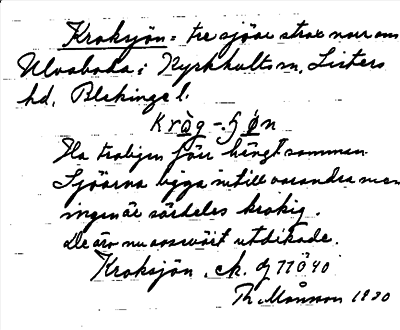 Kroksjön = tre sjöar strax norr om
Ulvaboda i Kyrkhults sn, Listers
hd, Blekinge l.
Kròg-ʃǿn
Ha troligen förr hängt samman.
Sjöarna ligga intill varandra men
ingen är särdeles krokig.
De äro nu oavsvärt utdikade.
Kroksjön, ek.
Th. Månsson 1930